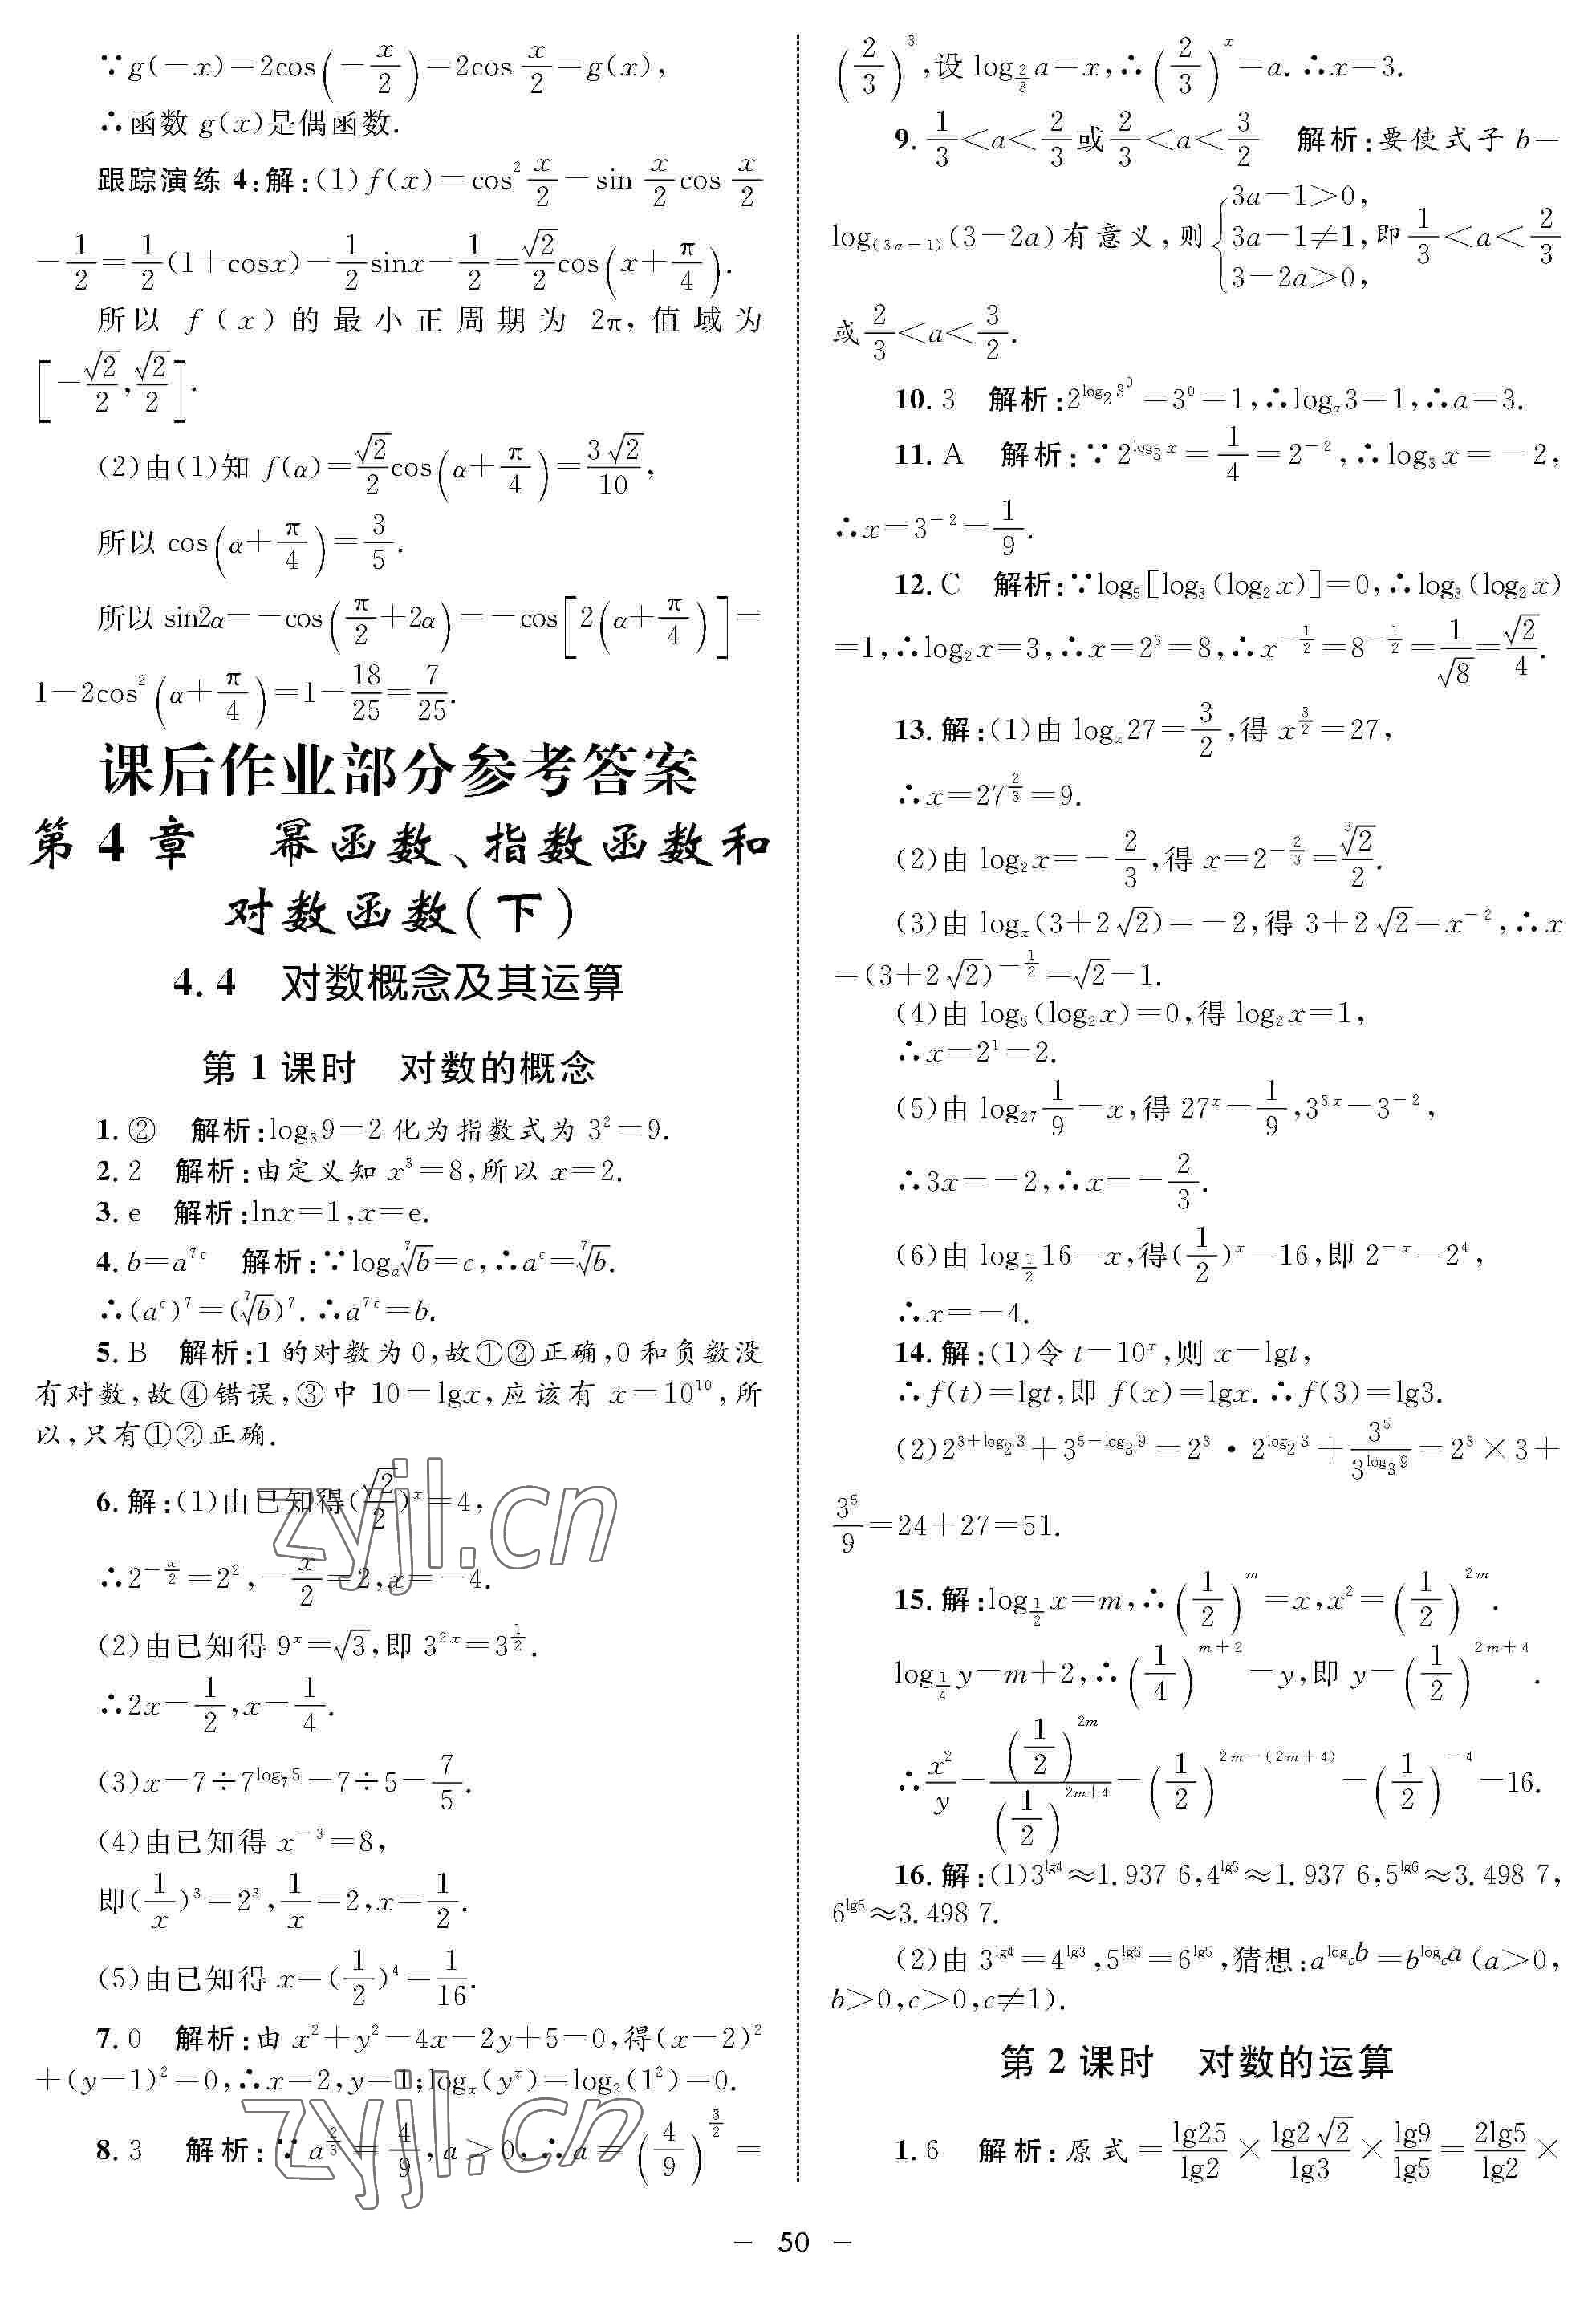 ∵g(−x)=2cos(−x/2)=2cos x/2=g(x),
∴函数 g(x)是偶函数.
跟踪演练 4:解:(1)f(x)=cos²x/2−sin x/2 cos x/2
−1/2=1/2(1+cosx)−1/2sinx−1/2=√2/2cos(x+π/4).
所以 f(x)的最小正周期为 2π,值域为
[−√2/2,√2/2].
(2)由(1)知 f(α)=√2/2cos(α+π/4)=3√2/10,
所以 cos(α+π/4)=3/5.
所以 sin2α=−cos(π/2+2α)=−cos[2(α+π/4)]=
1−2cos²(α+π/4)=1−18/25=7/25.
课后作业部分参考答案
第 4 章 幂函数、指数函数和
对数函数(下)
4.4 对数概念及其运算
第 1 课时 对数的概念
1.② 解析:log₃9=2 化为指数式为 3²=9.
2.2 解析:由定义知 x³=8,所以 x=2.
3.e 解析:lnx=1,x=e.
4.b=a^{7c} 解析:∵log_a ⁷√b=c,∴a^c=⁷√b.
∴(a^c)⁷=(⁷√b)⁷.∴a^{7c}=b.
5.B 解析:1 的对数为 0,故①②正确,0 和负数没
有对数,故④错误,③中 10=lgx,应该有 x=10¹⁰,所
以,只有①②正确.
6.解:(1)由已知得(√2/2)^x=4,
∴2^{−x/2}=2²,−x/2=2,x=−4.
(2)由已知得 9^x=√3,即 3^{2x}=3^{1/2}.
∴2x=1/2,x=1/4.
(3)x=7÷7^{log₇5}=7÷5=7/5.
(4)由已知得 x⁻³=8,
即(1/x)³=2³,1/x=2,x=1/2.
(5)由已知得 x=(1/2)⁴=1/16.
7.0 解析:由 x²+y²−4x−2y+5=0,得(x−2)²
+(y−1)²=0,∴x=2,y=1;log_x(y^x)=log₂(1²)=0.
8.3 解析:∵a^{2/3}=4/9,a>0,∴a=(4/9)^{3/2}=
(2/3)³,设 log_{2/3}a=x,∴(2/3)^x=a.∴x=3.
9.1/3<a<2/3或2/3<a<3/2 解析:要使式子 b=
log_{(3a−1)}(3−2a)有意义,则{3a−1>0,
3a−1≠1,即1/3<a<2/3
3−2a>0,
或2/3<a<3/2.
10.3 解析:2^{log₂3⁰}=3⁰=1,∴log_a3=1,∴a=3.
11.A 解析:∵2^{log₃x}=1/4=2⁻²,∴log₃x=−2,
∴x=3⁻²=1/9.
12.C 解析:∵log₅[log₃(log₂x)]=0,∴log₃(log₂x)
=1,∴log₂x=3,∴x=2³=8,∴x^{−1/2}=8^{−1/2}=1/√8=√2/4.
13.解:(1)由 log_x27=3/2,得 x^{3/2}=27,
∴x=27^{2/3}=9.
(2)由 log₂x=−2/3,得 x=2^{−2/3}=³√2/2.
(3)由 log_x(3+2√2)=−2,得 3+2√2=x⁻²,∴x
=(3+2√2)^{−1/2}=√2−1.
(4)由 log₅(log₂x)=0,得 log₂x=1,
∴x=2¹=2.
(5)由 log₂₇1/9=x,得 27^x=1/9,3^{3x}=3⁻²,
∴3x=−2,∴x=−2/3.
(6)由 log_{1/2}16=x,得(1/2)^x=16,即 2^{−x}=2⁴,
∴x=−4.
14.解:(1)令 t=10^x,则 x=lgt,
∴f(t)=lgt,即 f(x)=lgx.∴f(3)=lg3.
(2)2^{3+log₂3}+3^{5−log₃9}=2³·2^{log₂3}+3⁵/3^{log₃9}=2³×3+
3⁵/9=24+27=51.
15.解:log_{1/2}x=m,∴(1/2)^m=x,x²=(1/2)^{2m}.
log_{1/4}y=m+2,∴(1/4)^{m+2}=y,即 y=(1/2)^{2m+4}.
∴x²/y=(1/2)^{2m}/(1/2)^{2m+4}=(1/2)^{2m−(2m+4)}=(1/2)^{−4}=16.
16.解:(1)3^{lg4}≈1.937 6,4^{lg3}≈1.937 6,5^{lg6}≈3.498 7,
6^{lg5}≈3.498 7.
(2)由 3^{lg4}=4^{lg3},5^{lg6}=6^{lg5},猜想:a^{log_c b}=b^{log_c a}(a>0,
b>0,c>0,c≠1).
第 2 课时 对数的运算
1.6 解析:原式=lg25/lg2×lg2√2/lg3×lg9/lg5=2lg5/lg2×
— 50 —
zyjl.cn
zyjl.cn